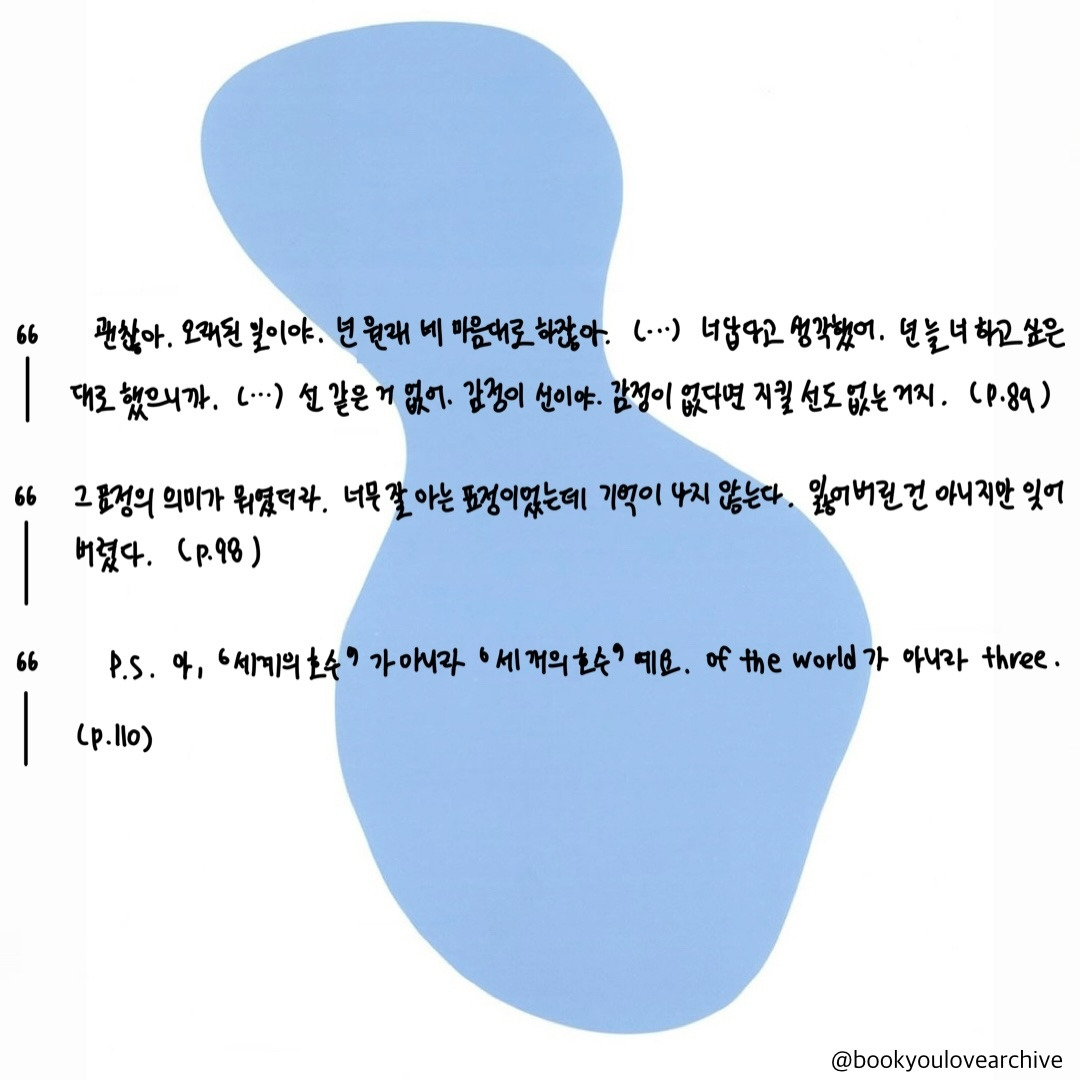 66 괜찮아. 오래된 일이야. 넌 원래 네 마음대로 하잖아. (…) 너답다고 생각했어. 넌 늘 너 하고 싶은
대로 했으니까. (…) 선 같은 거 없어. 감정이 선이야. 감정이 없다면 지킬 선도 없는 거지. (p.89)
66 그 표정의 의미가 뭐였더라. 너무 잘 아는 표정이었는데 기억이 나지 않는다. 잃어버린 건 아니지만 잊어
버렸다. (p.98)
66 P.S. 아, ‘세계의 호수’ 가 아니라 ‘세 개의 호수’ 예요. of the world가 아니라 three.
(p.110)
@bookyoulovearchive